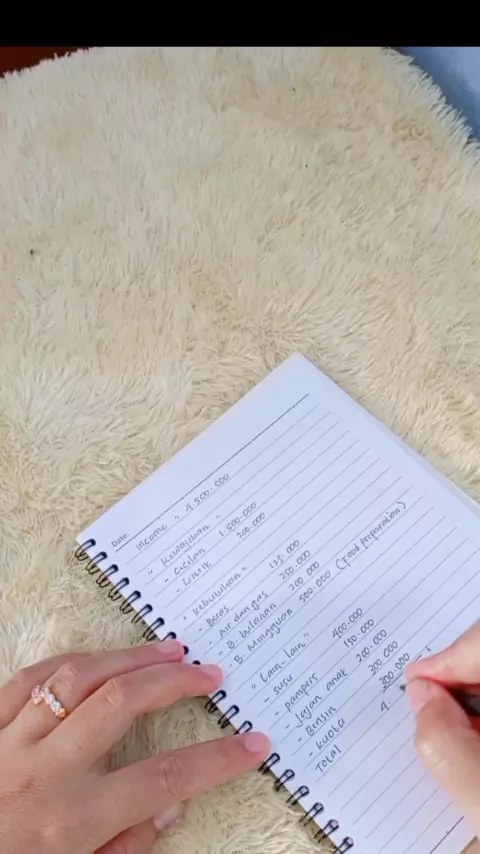 Date:
Income " 4.500.000
" Kewajiban "
- Cicilan 1.500.000
- Listrik 200.000
" Kebutuhan "
- Beras 125.000
- Air dan gas 250.000
- B. bulanan 200.000
- B. Mingguan 500.000 (Food Preparation)
" Lain-lain "
- susu 400.000
- pampers 150.000
- Jajan anak 200.000
- Bensin 300.000
- kuota 200.000
Total 4.